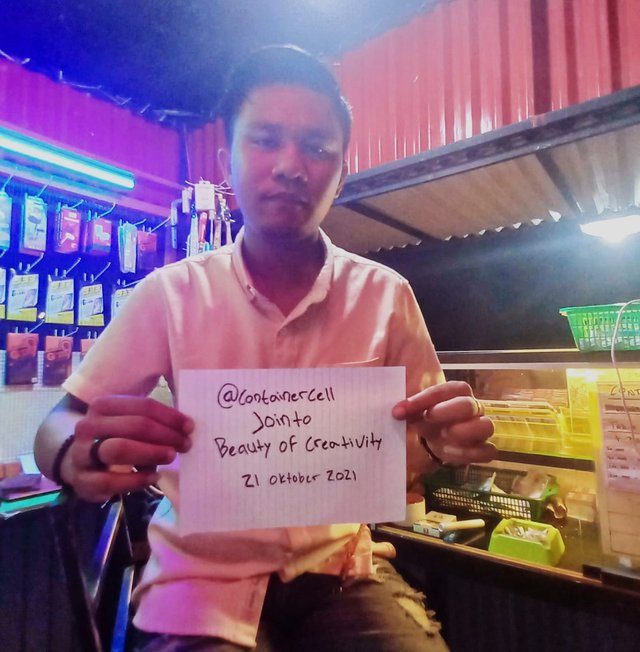 @ContainerCell
Join to
Beauty of Creativity
21 Oktober 2021